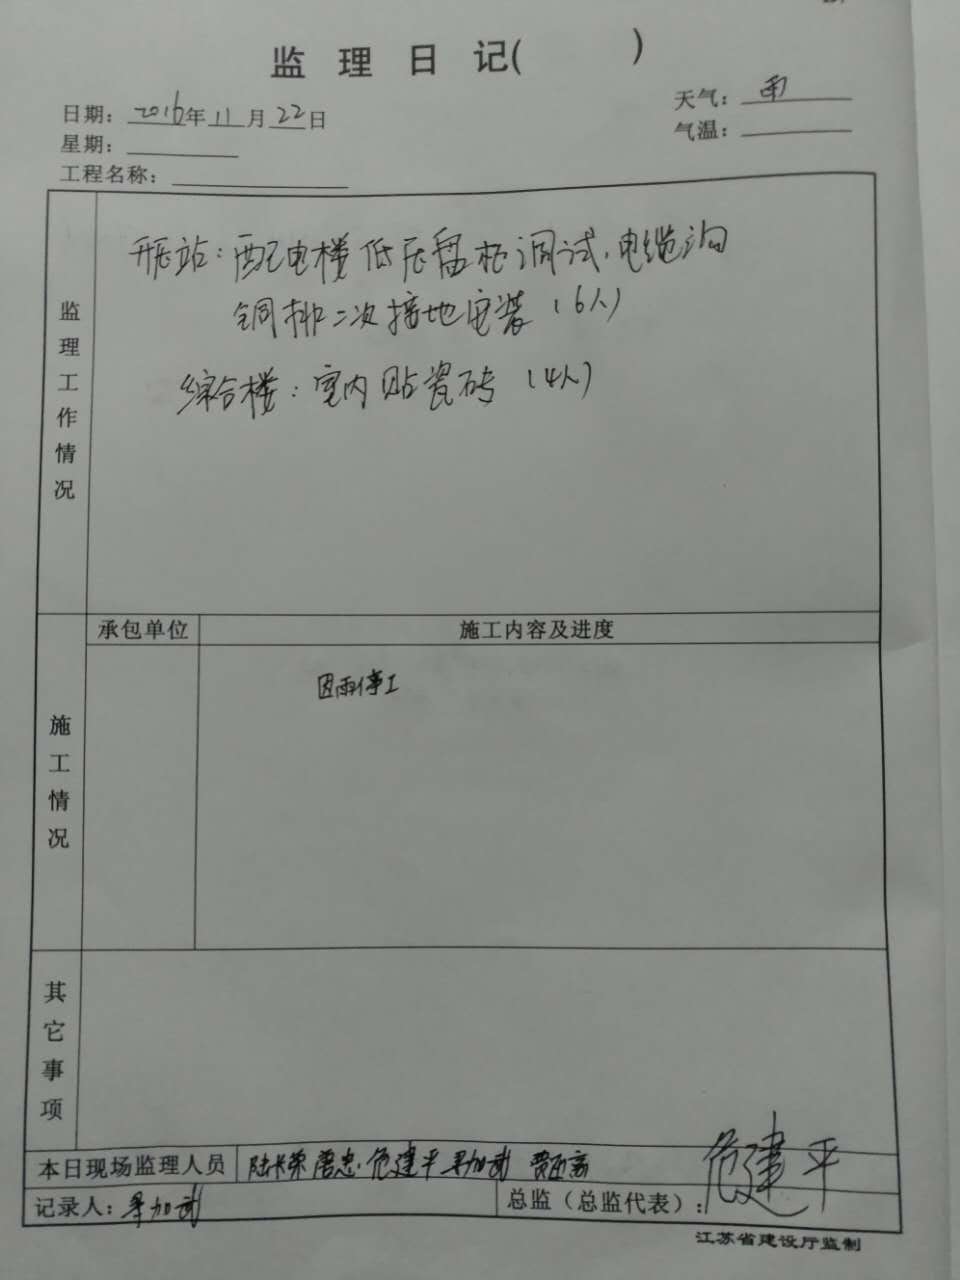 监理日记(　　)
日期：2016年11月22日
天气：雨
星期：
气温：
工程名称：
监理工作情况
站：配电楼低压盘柜调试、电缆沟
铜排二次接地安装（6人）
综合楼：室内贴瓷砖（4人）
承包单位 施工内容及进度
施工情况
因雨停工
其它事项
本日现场监理人员 陆长荣 唐忠 危建平 加武
记录人： 加武 总监（总监代表）：危建平
江苏省建设厅监制